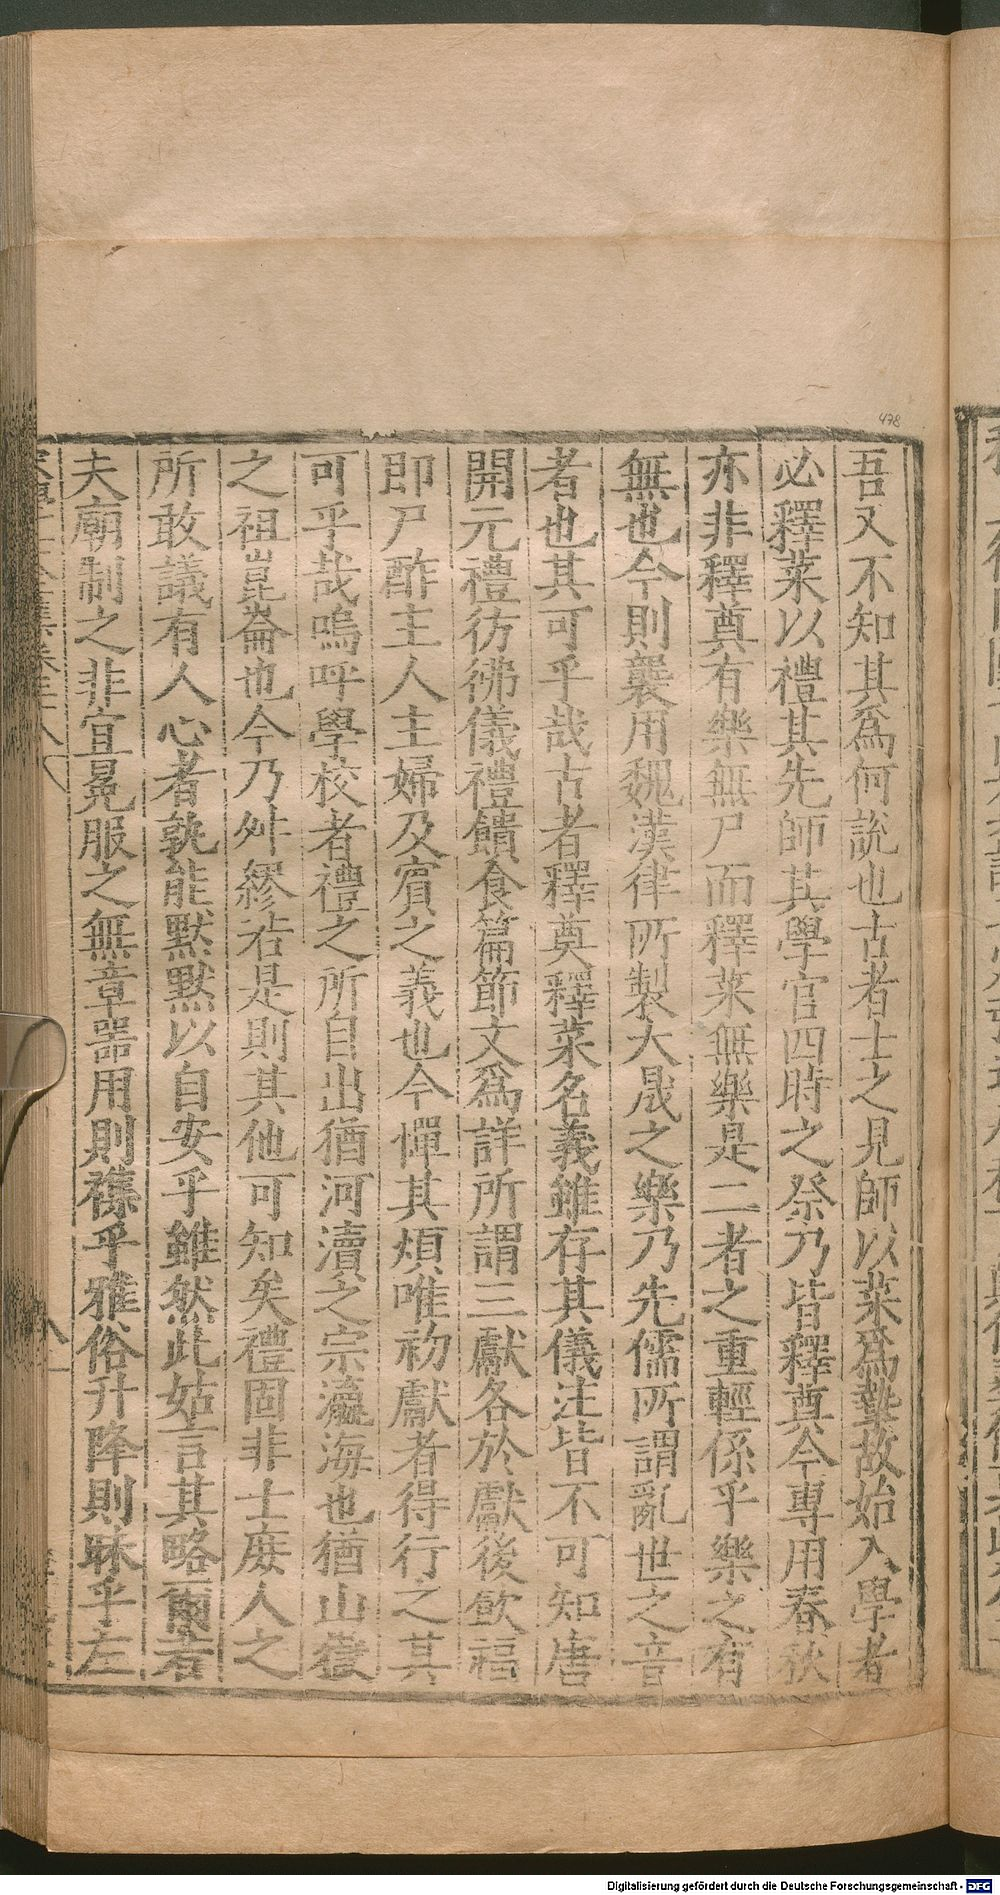 吾又不知其爲何說也古者士之見師以菜爲摯故始入學者
必釋菜以禮其先師其學官四時之祭乃皆釋奠今專用春秋
亦非釋奠有樂無尸而釋菜無樂是二者之重輕係乎樂之有
無也今則襲用魏漢律所製大晟之樂乃先儒所謂亂世之音
者也其可乎哉古者釋奠釋菜名義雖存其儀注皆不可知唐
開元禮彷彿儀禮饋食篇節文爲詳所謂三獻各於獻後飲福
即尸酢主人主婦及賓之義也今憚其煩唯初獻者得行之其
可乎哉嗚呼學校者禮之所自出猶河瀆之宗瀛海也猶山嶽
之祖崑崙也今乃舛繆若是則其他可知矣禮固非士庶人之
所敢議有人心者孰能默默以自安乎雖然此姑言其略爾若
夫廟制之非宜冕服之無章器用則襍乎雅俗升降則昧乎左
478
Digitalisierung gefördert durch die Deutsche Forschungsgemeinschaft - DFG